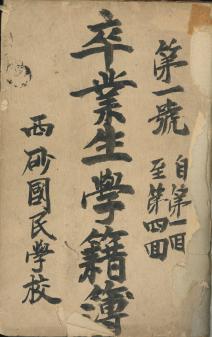 第一號
自第一回
至第四回
卒業生學籍簿
西砂國民學校